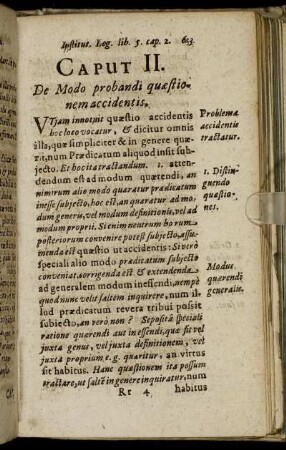 Institut. Log. lib. 5. cap. 2. 603
CAPUT II.
De Modo probandi quæstio-
nem accidentis.
VTjam innotuit quæstio accidentis
hoc loco vocatur, & dicitur omnis
illa, quæ simpliciter & in genere quæ-
rit, num Prædicatum aliquod insit sub-
jecto. Et hoc ita tractandum. 1. atten-
dendum est ad modum quærendi, an
nimirum alio modo quæratur prædicatum
inesse subjecto, hoc est, an quæratur ad mo-
dum generis, vel modum definitionis, vel ad
modum proprii. Si enim neutrum horum
posteriorum convenire potest subjecto, assu-
menda est quæstio ut accidentis: Si verò
speciali alio modo prædicatum subjecto
conveniat, corrigenda est & extendenda
ad generalem modum inessendi, nempè
quod nunc velis saltem inquirere, num il-
lud prædicatum revera tribui possit
subjecto, an verò non? Sepositâ speciali
ratione quærendi aut inessendi, quæ sit vel
juxta genus, vel juxta definitionem, vel
juxta proprium e.g. quæritur, an virtus
sit habitus. Hanc quæstionem ita possum
tractare, ut saltē in genere inquiratur, num
Rr 4 habitus
Problema
accidentis
tractatur.
1. Distin-
guendo
quæstio-
nes.
Modus
quærendi
generalis.